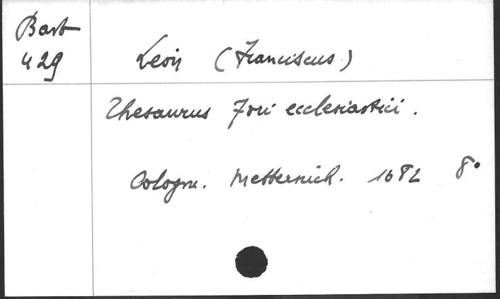 Bast
429
Leon (Franciscus)
Thesaurus Fori ecclesiastici.
Cologne. Metternich. 1682 8°